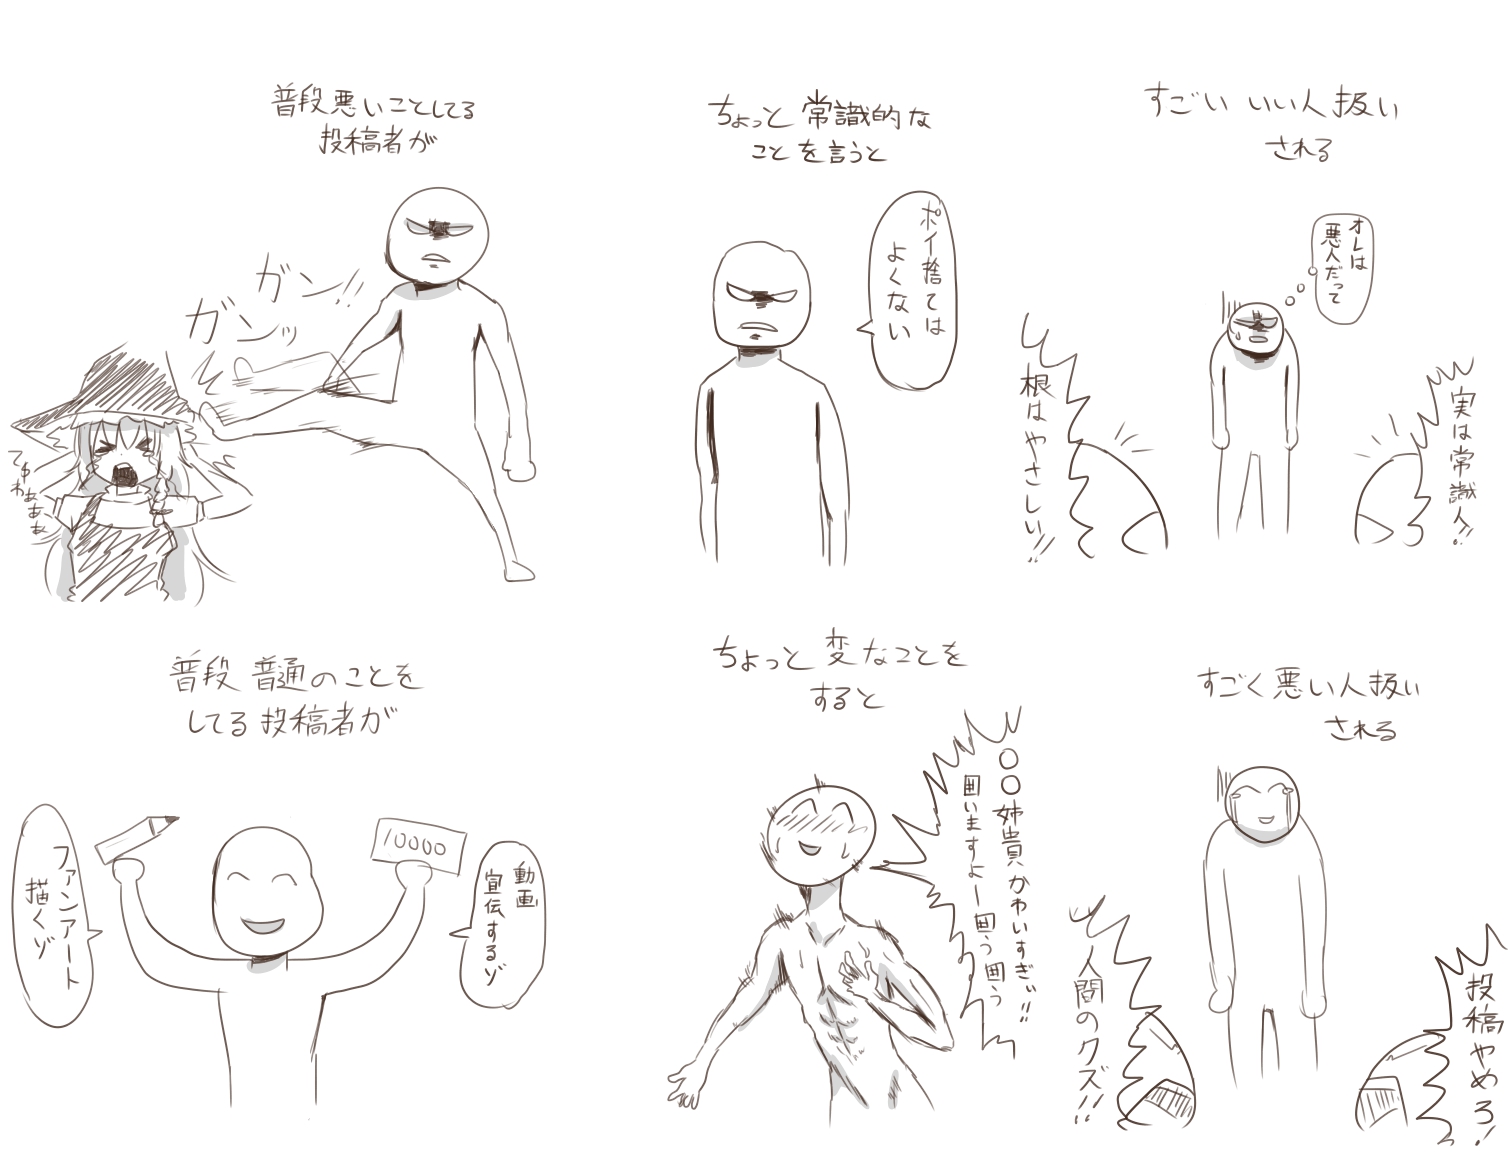 普段悪いことしてる
投稿者が
ガン!!
ガンッ
ちょっと常識的な
ことを言うと
ポイ捨ては
よくない
すごいいい人扱い
される
オレは
悪人だって
根はやさしい!!
実は常識人!!
普段普通のことを
してる投稿者が
ファンアート
描くゾ
10000
動画
宣伝するゾ
ちょっと変なことを
すると
〇〇姉貴かわいすぎぃ!!
囲いますよー囲う囲う
すごく悪い人扱い
される
人間のクズ!!
投稿やめろ!